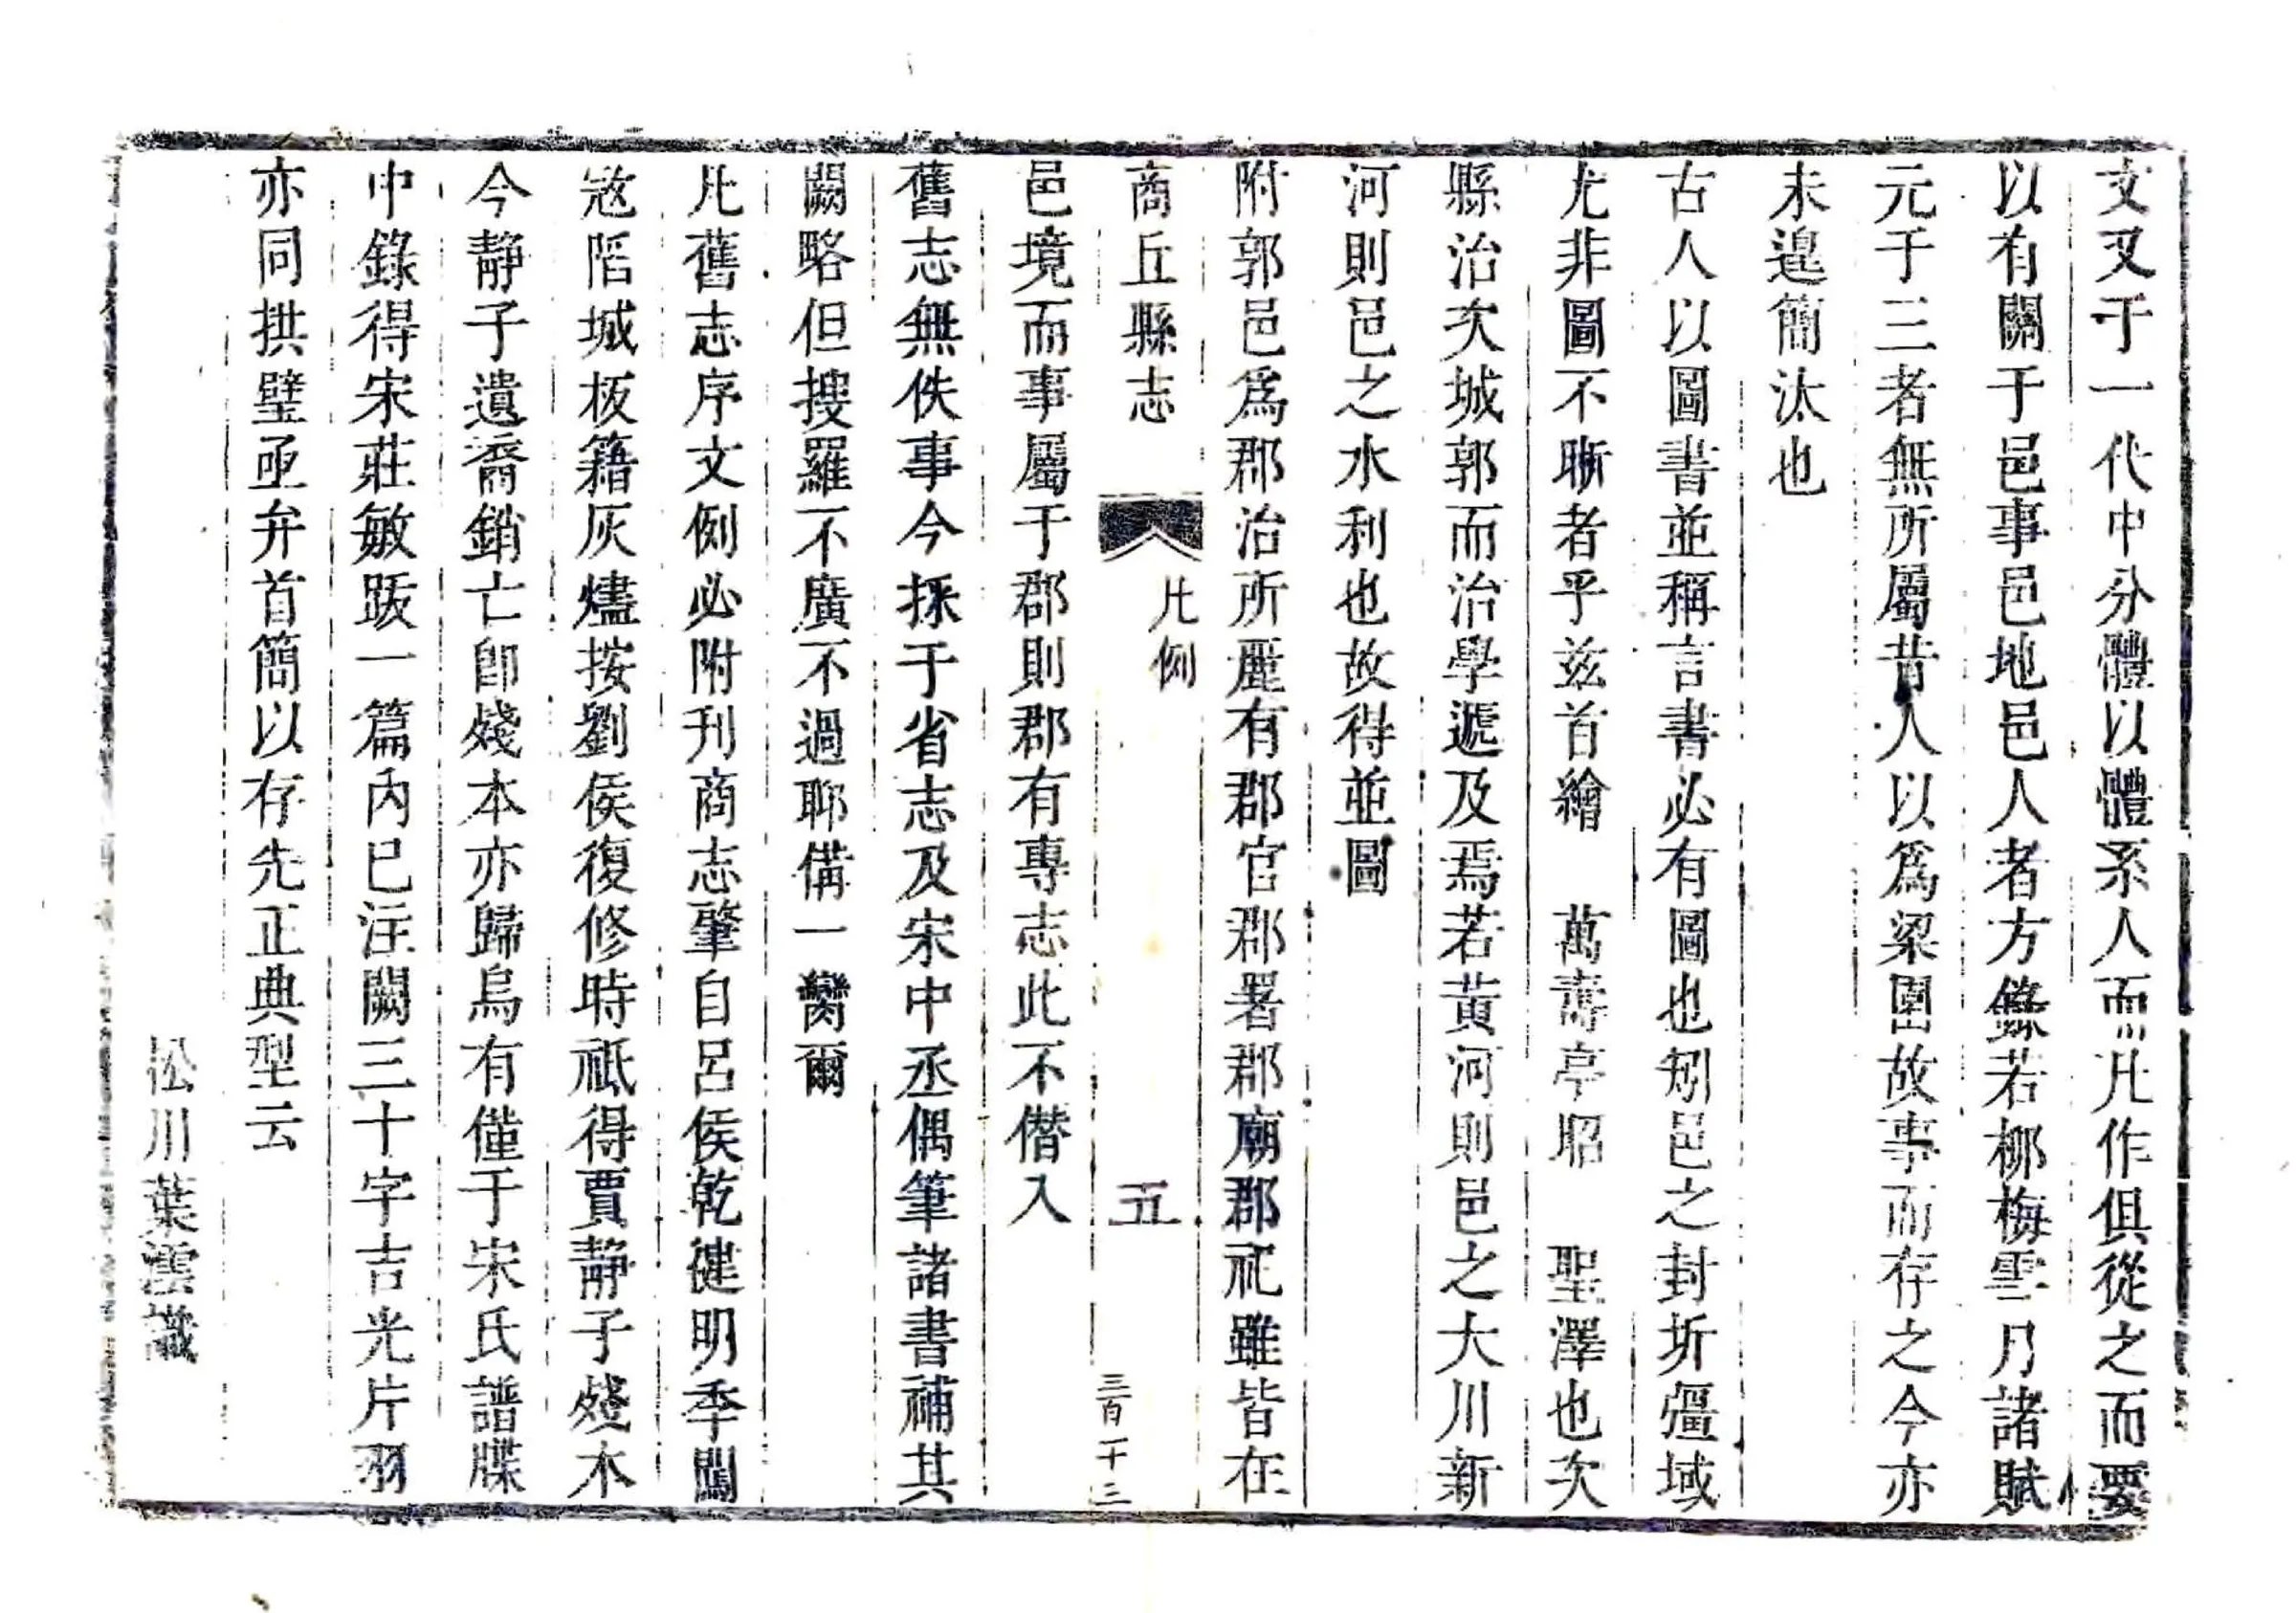 文又于一代中分體以體系人而凡作俱從之而要
以有關于邑事邑地邑人者方錄若柳梅雪月諸賦
元于三者無所屬昔人以爲梁園故事而存之今亦
未遑簡汰也
古人以圖書並稱言書必有圖也矧邑之封圻彊域
尤非圖不晰者乎玆首繪 萬壽亭昭 聖澤也次
縣治次城郭而治學遞及焉若黃河則邑之大川新
河則邑之水利也故得並圖
附郭邑爲郡治所麗有郡官郡署郡廟郡祀雖皆在
商丘縣志 凡例 五 三百十三
邑境而事屬于郡則郡有專志此不僭入
舊志無佚事今採于省志及宋中丞偶筆諸書補其
闕略但搜羅不廣不過聊備一臠爾
凡舊志序文例必附刊商志肇自呂侯乾健明季闖
寇陷城板籍灰燼按劉侯復修時祗得賈靜子殘本
今靜子遺裔銷亡卽殘本亦歸烏有僅于宋氏譜牒
中錄得宋莊敏跋一篇內已注闕三十字吉光片羽
亦同拱璧亟弁首簡以存先正典型云
松川葉澐識